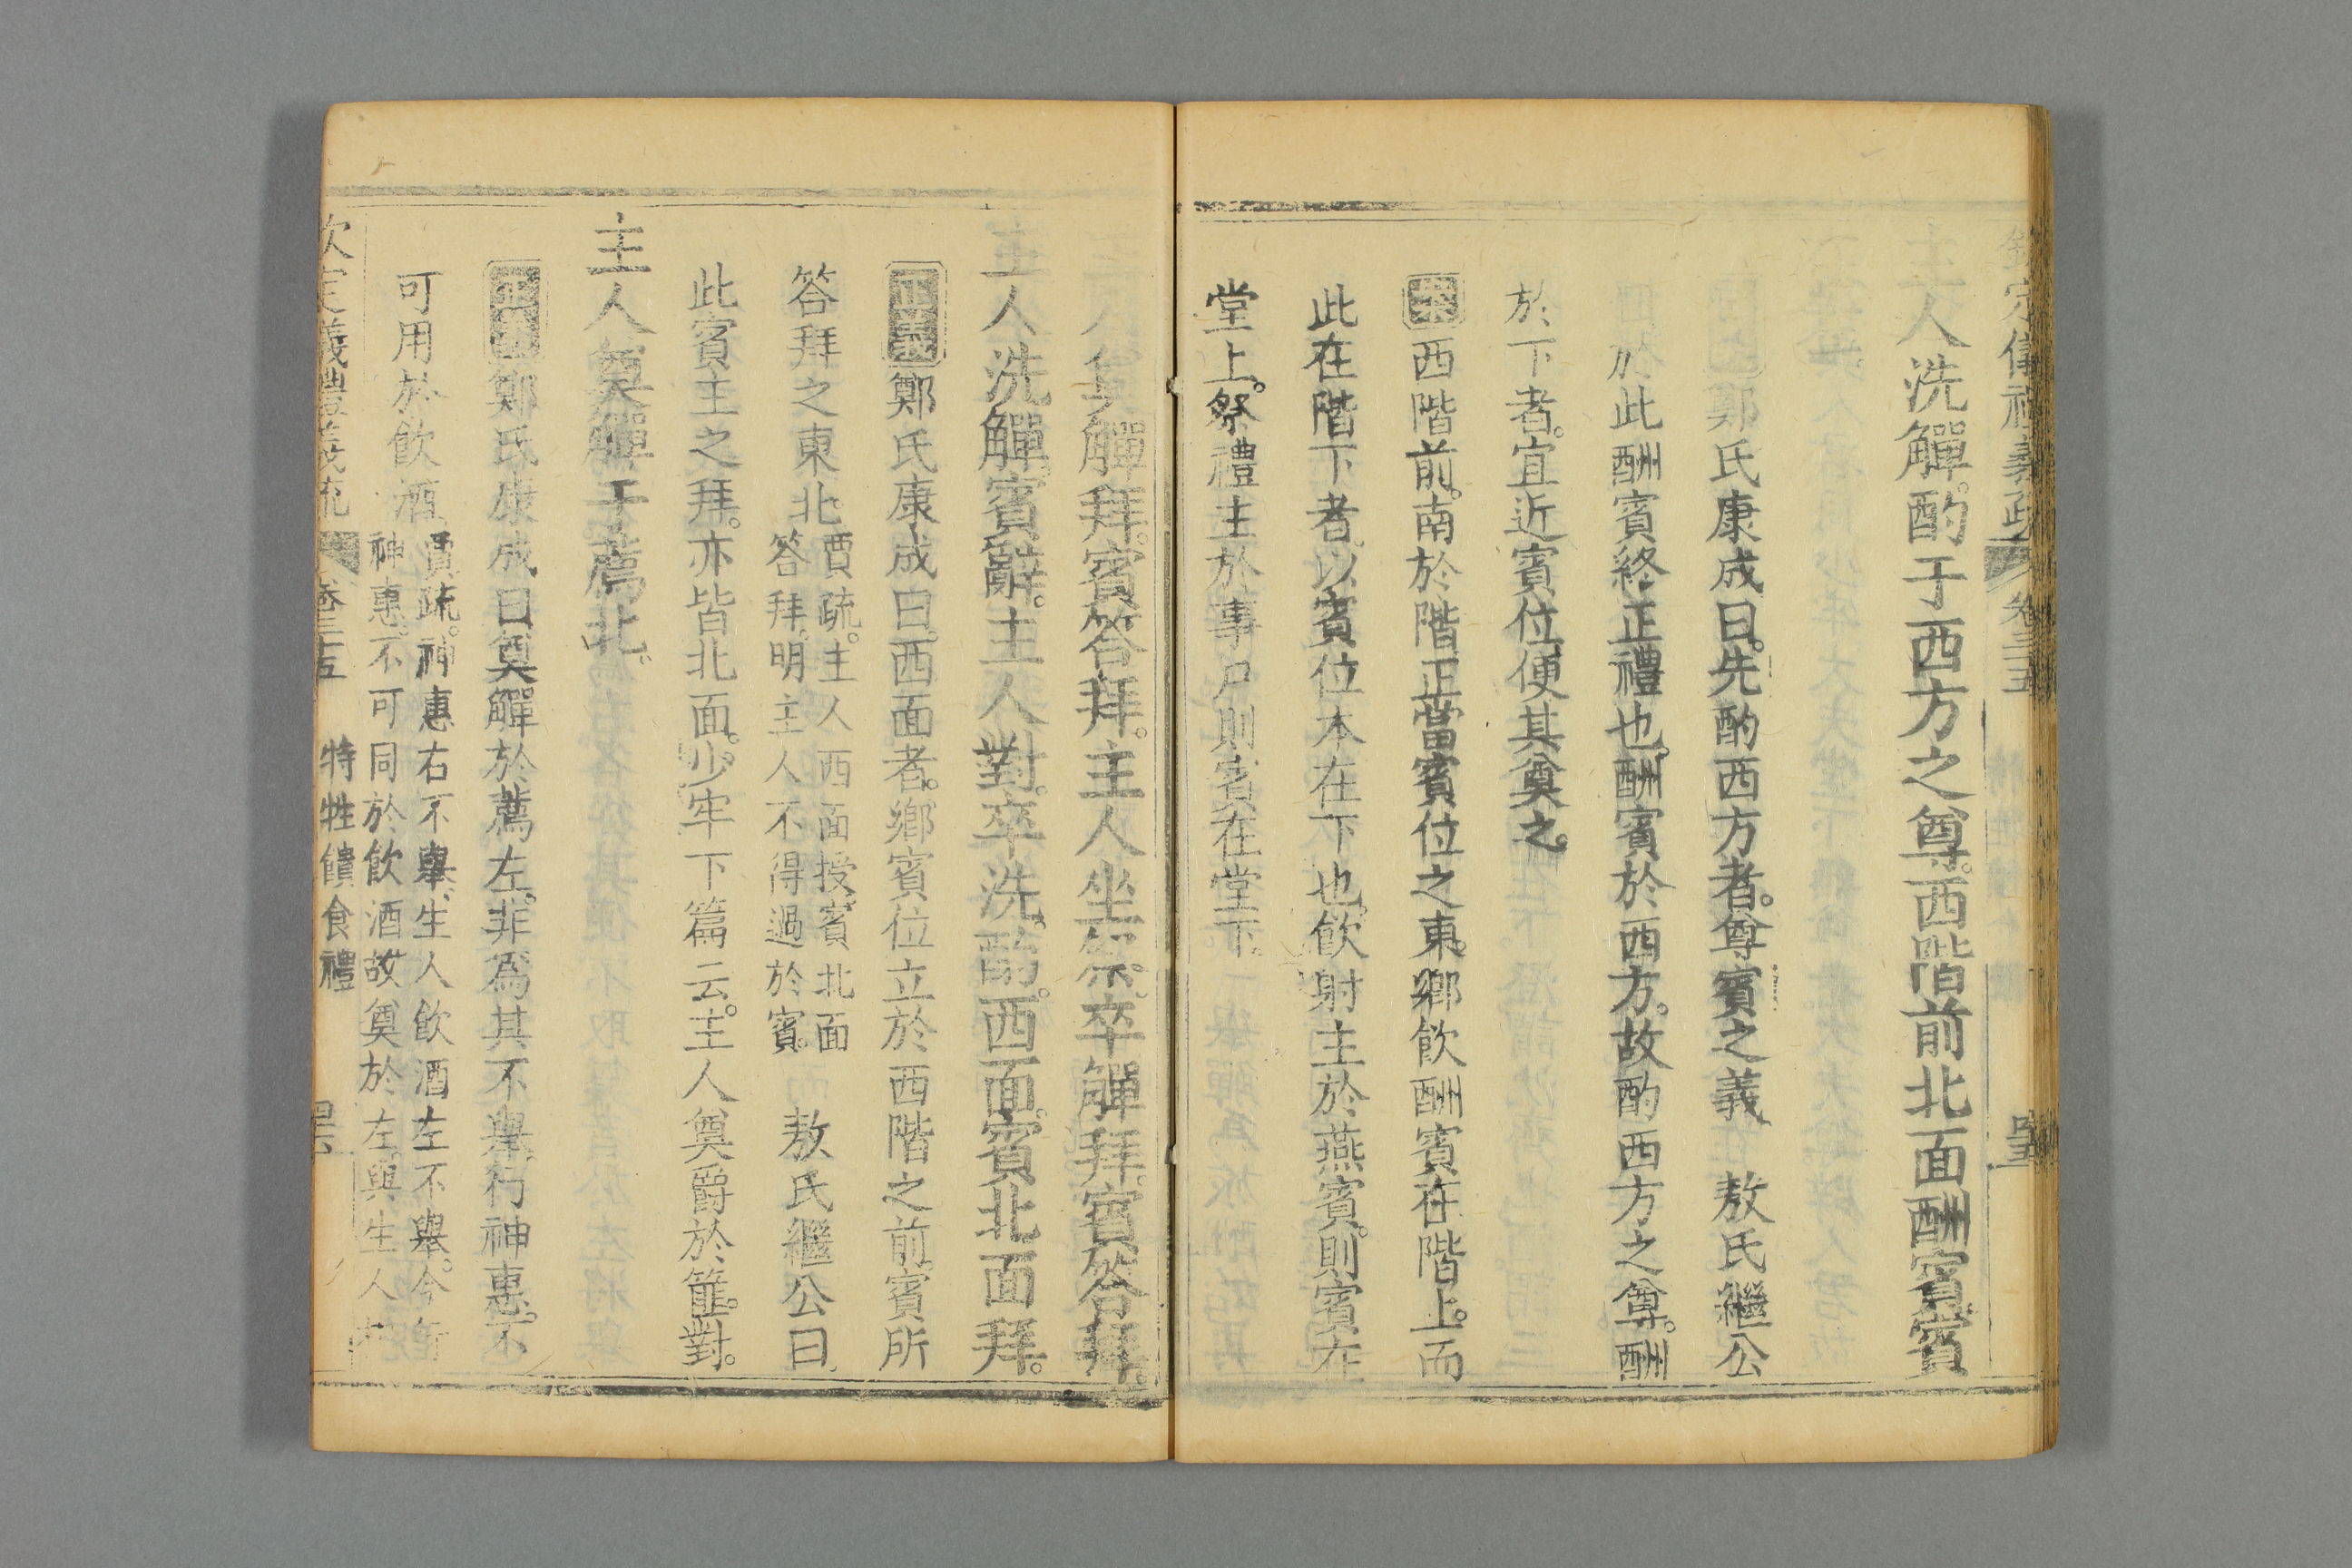 欽定儀禮義疏 卷三十五 四十五
主人洗觶酌于西方之尊西階前北面酬賓賓
鄭氏康成曰先酌西方者尊賓之義 敖氏繼公
於此酬賓終正禮也酬賓於西方故酌西方之尊酬
於下者宜近賓位便其奠之
西階前南於階正當賓位之東鄉飲酬賓在階上而
此在階下者以賓位本在下也飲射主於燕賓則賓在
堂上祭禮主於事尸則賓在堂下
奠觶拜賓答拜主人坐祭卒觶拜賓答拜
主人洗觶賓辭主人對卒洗酌西面賓北面拜
正義鄭氏康成曰西面者鄉賓位立於西階之前賓所
答拜之東北
賈疏主人西面授賓北面
答拜明主人不得過於賓
敖氏繼公曰
此賓主之拜亦皆北面少牢下篇云主人奠爵於篚對
主人奠觶于薦北
正義鄭氏康成曰奠觶於薦左非為其不舉行神惠不
可用於飲酒
賈疏神惠右不舉生人飲酒左不舉今行
神惠不可同於飲酒故奠於左與生人
欽定義禮義疏 卷三十五 特牲饋食禮